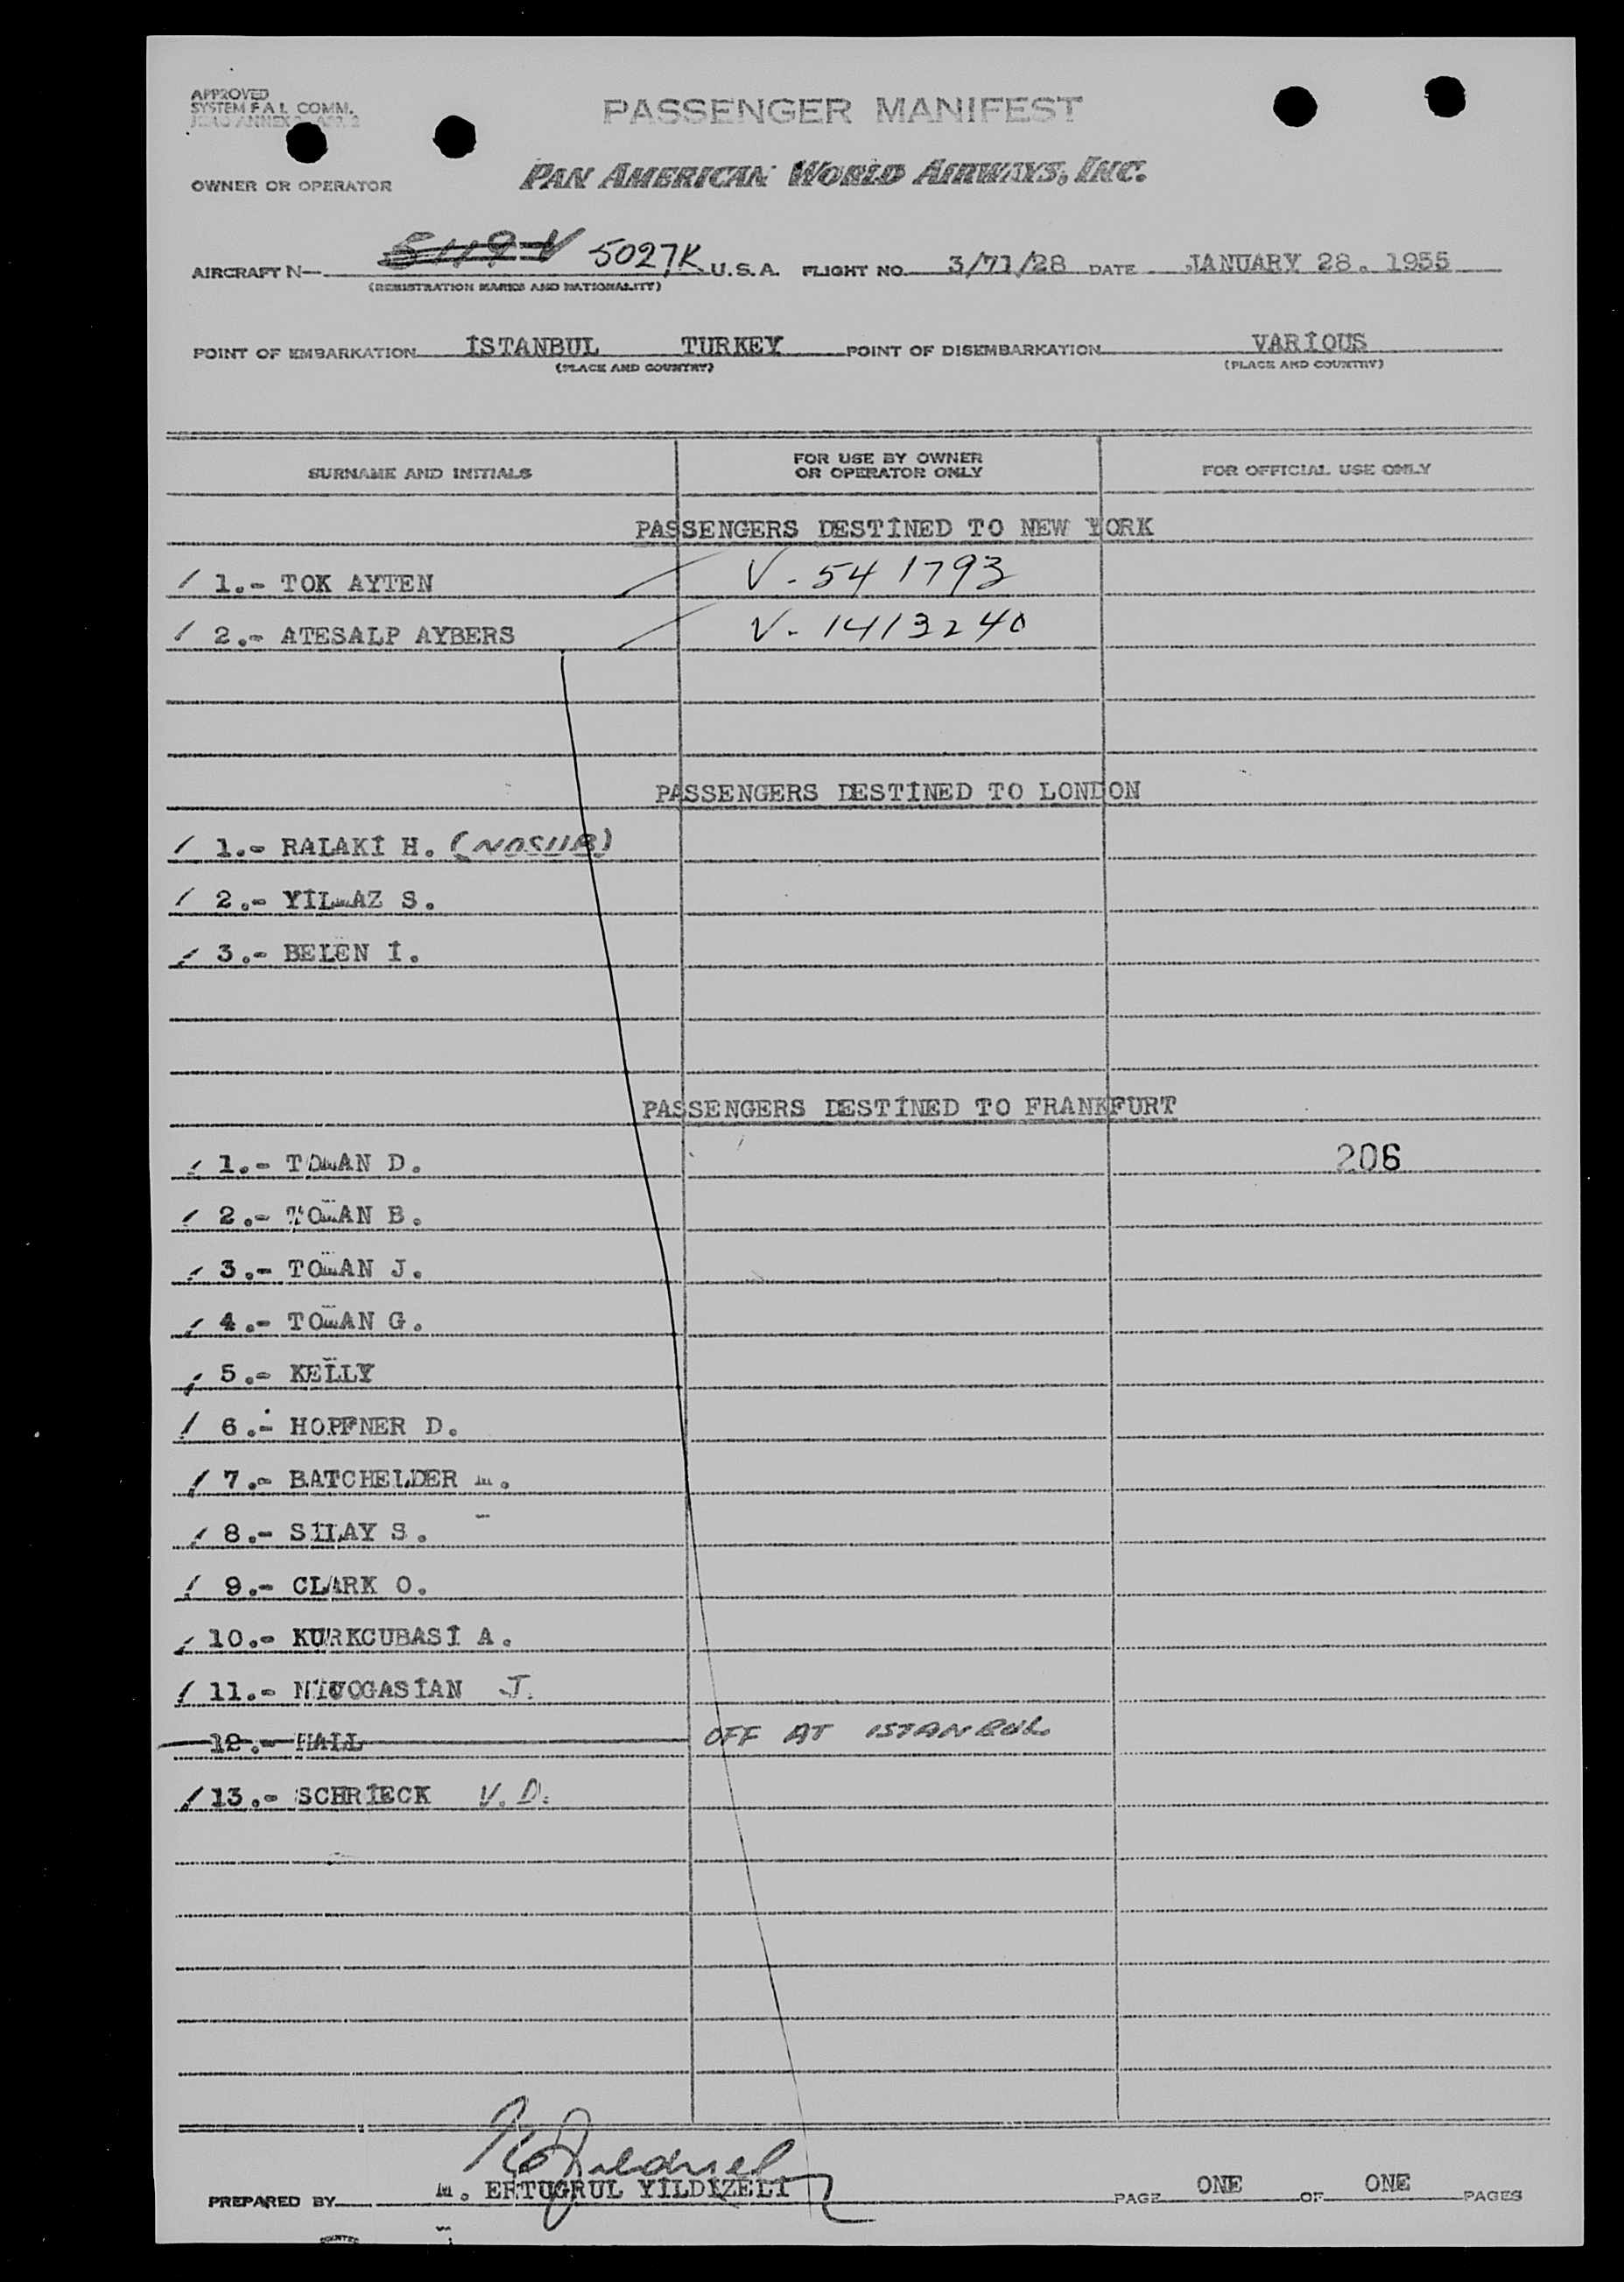 APPROVED
SYSTEM F.A.L. COMM.
PASSENGER MANIFEST
OWNER OR OPERATOR PAN AMERICAN WORLD AIRWAYS, INC.
AIRCRAFT N— 5119 V 5027K U.S.A. FLIGHT NO. 3/71/28 DATE JANUARY 28. 1955
(REGISTRATION MARKS AND NATIONALITY)
POINT OF EMBARKATION İSTANBUL TURKEY POINT OF DISEMBARKATION VARİOUS
(PLACE AND COUNTRY) (PLACE AND COUNTRY)
SURNAME AND INITIALS FOR USE BY OWNER OR OPERATOR ONLY FOR OFFICIAL USE ONLY
PASSENGERS DESTİNED TO NEW YORK
/ 1.- TOK AYTEN V-541793
/ 2.- ATESALP AYBERS V-1413240
PASSENGERS DESTİNED TO LONDON
/ 1.- RALAKİ H. (NOSUB)
/ 2.- YİLMAZ S.
/ 3.- BELEN İ.
PASSENGERS DESTİNED TO FRANKFURT
/ 1.- TOMAN D. 206
/ 2.- TOMAN B.
/ 3.- TOMAN J.
/ 4.- TOMAN G.
/ 5.- KELLY
/ 6.- HOPFNER D.
/ 7.- BATCHELDER M.
/ 8.- SİLAY S.
/ 9.- CLARK O.
/ 10.- KURKCUBASİ A.
/ 11.- NİGOGASİAN J.
12.- HALL OFF AT ISTANBUL
/ 13.- SCHRİECK V.D.
PREPARED BY M. ERTUGRUL YİLDİZELİ PAGE ONE OF ONE PAGES